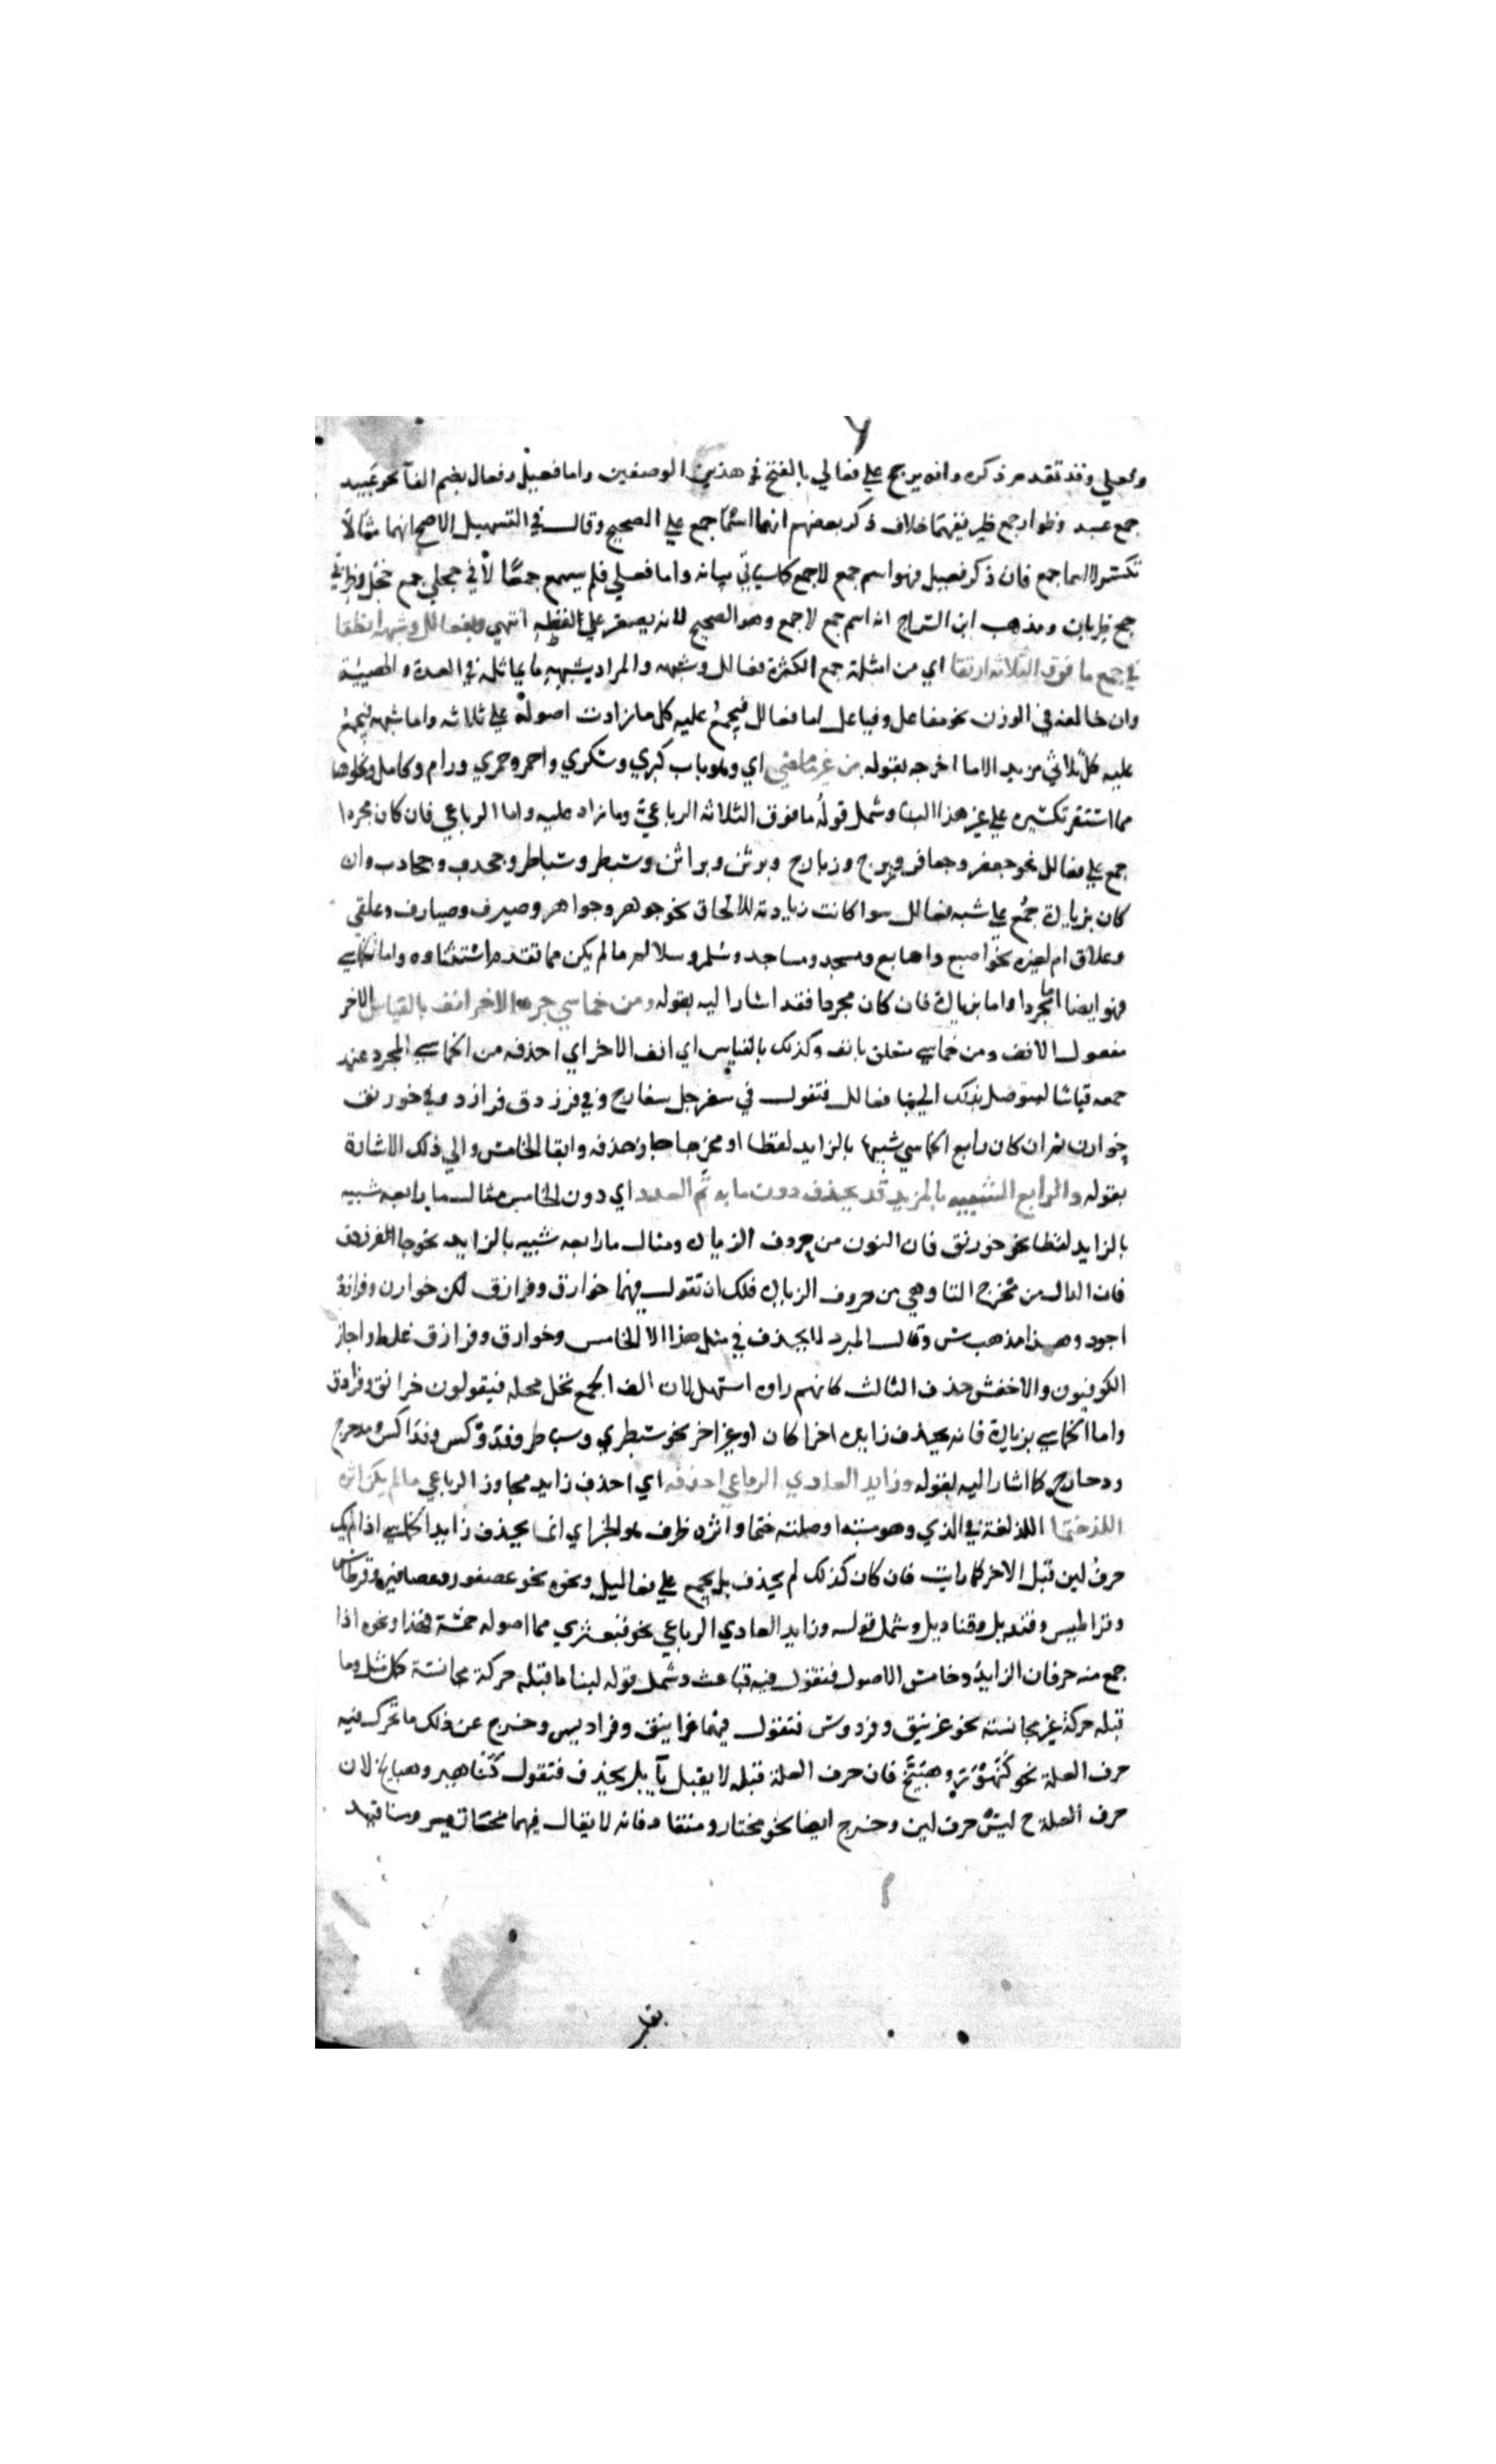 وفعلى وقد تقدم ذكره وانه يرجح علي فعالي بالفتح في هذين الوصفين واما فعيل وفعال بضم الفآ نحو عبيد
جمع عبد وظوار جمع ظير ففيهما خلاف ذكر بعضهم انهما اسما جمع علي الصحيح وقال في التسهيل الاصح انهما مثالا
تكسير لا اسما جمع فان ذكر فعيل فهو اسم جمع لا جمع كما سياتي بيانه واما فعلي فلم يسمع جمعًا الا في حجلي جمع حجل وظربي
جمع ظربان ومذهب ابن السراج انه اسم جمع لا جمع وهو الصحيح لانه يصغر علي لفظه انتهى وبفعالل وشبهه انطقا
في جمع ما فوق الثلاثة ارتقا اي من امثلة جمع الكثرة فعالل وشبهه والمراد بشبهه ما يماثله في العدة والهيئة
وان خالفه في الوزن نحو مفاعل وفياعل اما فعالل فيجمع عليه كل ما زادت اصوله علي ثلاثه واما شبهه فيجمع
عليه كل ثلاثي مزيد الا ما اخرجه بقوله من غير ما مضى اي وهو باب كبري وسكري واحمر وحمري ورام وكامل ونحوها
مما استقر تكسيره علي غير هذا البنا وشمل قولُه ما فوق الثلاثه الرباعيّ وما زاد عليه واما الرباعي فان كان مجردا
جمع علي فعالل نحو جعفر وجعافر وزبرج وزبارج وبرثن وبراثن وسبطر وسباطر وجحدب وجحادب وان
كان بزيادة جمع علي شبه فعالل سوا كانت زيادته للالحاق نحو جوهر وجواهر وصيرف وصيارف وعلقي
وعلاق ام لغيره نحو اصبع واصابع ومسجد ومساجد وسلم وسلالم ما لم يكن مما تقدم استثناوه واما الخماسي
فهو ايضا اما مجردا واما بزيادة فان كان مجردا فقد اشار اليه بقوله ومن خماسي جرد الاخر انف بالقياس الاخر
مفعول الانف ومن خماسي متعلق بانف وكذلك بالقياس اي انف الاخر اي احذفه من الخماسي المجرد عند
جمعه قياسًا لتتوصل بذلك الي بنا فعالل فتقول في سفرجل سفارج وفي فرزدق فرازد وفي خورنق
خوارن ثم ان كان رابع الخماسي شبيها بالزايد لفظا او مخرجا جاز حذفه وابقا الخامس والي ذلك الاشارة
بقوله والرابع الشبيه بالمزيد قد يحذف دون ما به تم العدد اي دون الخامس مثال ما رابعه شبيه
بالزايد لفظا نحو خورنق فان النون من حروف الزيادة ومثال ما رابعه شبيه بالزايد مخرجا الفرزدق
فان الدال من مخرج التا وهي من حروف الزيادة فلك ان تقول فيهما خوارق وفرازق لكن خوارن وفرازد
اجود وهذا مذهب س وقال المبرد لا يحذف في مثل هذا الا الخامس وخوارق وفرازق غلط واجاز
الكوفيون والاخفش حذف الثالث كانهم راوه اسهل لان الف الجمع تحل محله فيقولون خرانق وفرادق
واما الخماسي بزيادة فانه يحذف زايده اخرا كان او غير اخر نحو سبطري وسباطر وفدوكس وفداكس ومدحرج
ودحارج كما اشار اليه بقوله وزايد العادي الرباعي احذفه اي احذف زايد مجاوز الرباعي ما لم يك اثره
اللذ ختما اللذ لغة في الذي وهو مبتدا وصلته ختما واثره ظرف هو الخبر اي انما يحذف زايد الخماسي اذا لم يك
حرف لين قبل الاخر كما رايت فان كان كذلك لم يحذف بل يجمع علي فعاليل ونحوه نحو عصفور وعصافير وقرطاس
وقراطيس وقنديل وقناديل وشمل قوله وزايد العادي الرباعي نحو قبعثري مما اصوله خمسة فهذا ونحوه اذا
جمع منه حرفان الزايد وخامس الاصول فتقول فيه قباعث وشمل قوله لينا ما قبله حركة مجانسة كما مثل وما
قبله حركة غير مجانسة نحو غرنيق وفردوس فتقول فيهما غرانيق وفراديس وخرج عن ذلك ما تحرك فيه
حرف العلة نحو كنهور وهبيخ فان حرف العلة قبله لا يقبل يآ بل يحذف فتقول كناهر وهبايخ لان
حرف العلة ح ليس حرف لين وخرج ايضا نحو مختار ومنقاد فانه لا يقال فيهما مخاتير ومناقيد
بقلب